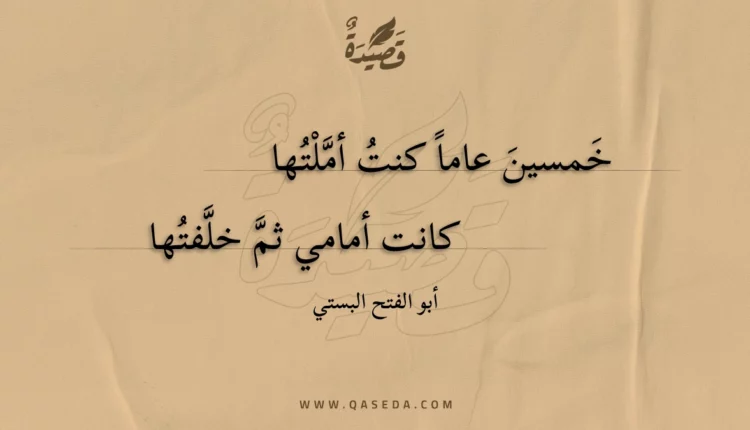 قَصِيْدَةٌ
خَمسينَ عاماً كنتُ أمَّلْتُها
كانت أمامي ثمَّ خلَّفتُها
أبو الفتح البستي
WWW.QASEDA.COM